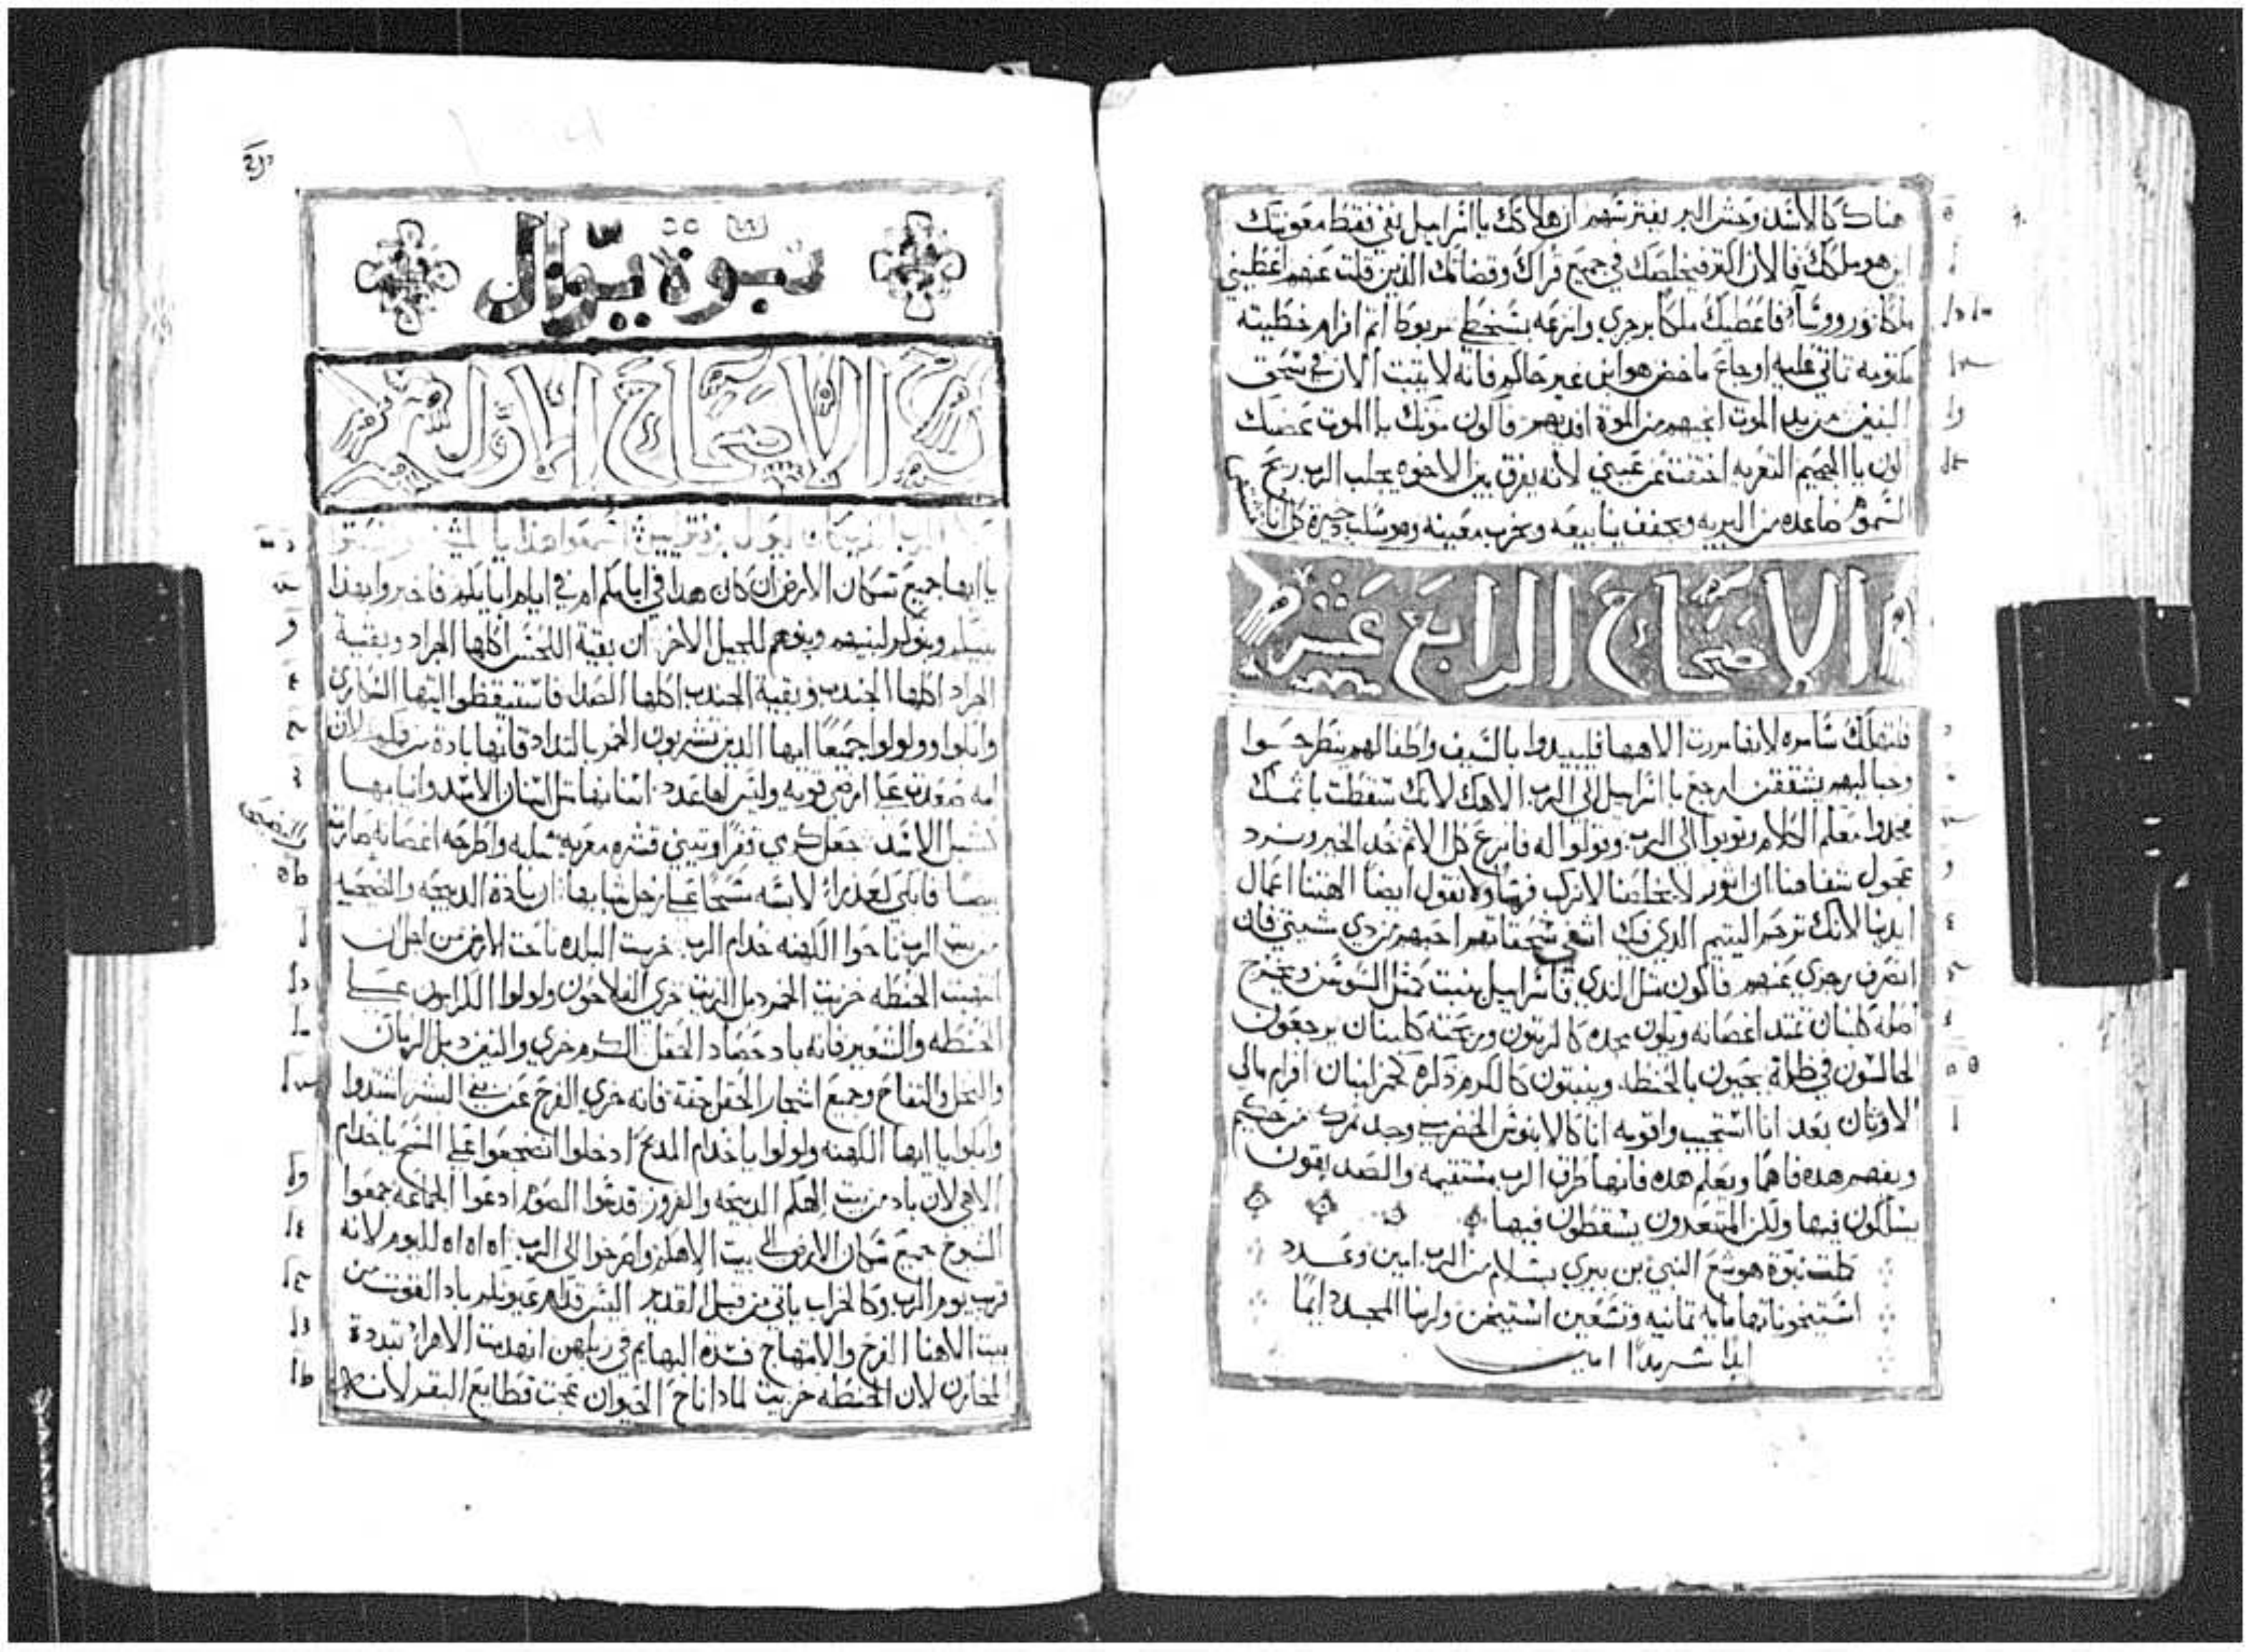 هناك كالاسد وحش البر يفترسهم ان هلاكك يا اسرايل بي فقط معونتك
اين هو ملكك فالان اكتر فيخلصك في جميع قراك وقضاتك الذين قلت عنهم اعطيني
ملكا ورووسآ فاعطيك ملكا برجزي وانزعه بسخطي مربوط اثم افرام خطيته
مكتومه تاتي عليه اوجاع ماخض هو ابن غير حاكم فانه لا يثبت الان في سحق
البنين من يد الموت انجيهم من الموة افديهم فاكون موتك يا الموت عضتك
اكون يا الجحيم التعزيه اختفت عن عيني لانه يفرق بين الاخوه يجلب الرب ريح
السموم صاعده من البريه ويجفف ينابيعه ويخرب معينه وهو يسلب دخيرة كل انا مشتهى
الاصحاح الرابع عشر
فلتهلك سامره لانها مررت الاهها فليبيدوا بالسيف واطفالهم ينطرحوا
وحباليهم يشققن ارجع يا اسرايل الى الرب الاهك لانك سقطت باثمك
خدوا معكم الكلام وتوبوا الى الرب وقولوا له فانزع كل الاثم خد الخير ونرد
عجول شفاهنا اثور لا يخلصنا لا نركب فرسا ولا نقول ايضا الهتنا اعمال
ايدينا لانك ترحم اليتيم الدي فيك اشفي سحقاتهم احبهم بمردي مشيتي فان
انصرف رجزي عنهم فاكون مثل الندي اسرايل ينبت كمثل السوسن ويخرج
اصله كلبنان تمتد اغصانه ويكون مجده كالزيتون وريحته كلبنان يرجعون
الجالسون في ظله يحيون بالحنطه وينبتون كالكرم ذكره كخمر لبنان افرام مالي
الاوثان بعد انا استجيب واقومه انا كالابنوس الخضر مني وجد ثمرك من حكيم
ويفهم هده فاهما ويعلم هده فانها طرق الرب مستقيمه والصديقون
يسلكون فيها ولكن المتعدون يسقطون فيها
كملت نبوة هوشع النبي بن بيري بسلام من الرب امين وعدد
استيخوناتها مايه تمانيه وتسعين استيخن ولربنا المجد دايما
ابدا سرمدا امين
نبوة يوال
الاصحاح الاول
الرب الذي كان الى يوال بن فتوايل اسمعوا هذا يا المشايخ وانصتو
يا ايها جميع سكان الارض ان كان هدا في ايامكم ام في ايام ابايكم فاخبروا بهدا
بنيكم وبنوكم لبنيهم وبنوهم للجيل الاخر ان بقية اللحس اكلها الجراد وبقية
الجراد اكلها الجندب وبقية الجندب اكلها الصدا فاستيقظوا ايتها السكارى
وابكوا وولولوا جميعا ايها الدين تشربون الخمر بالتلداد فانها بادة من فمكم لان
امه صعدت على ارضي قويه وليس لها عدد اسنانها مثل اسنان الاسد وانيابها
كشبل الاسد جعل كرمي قفرا وتيني قشره معريه سلبه واطرحه اغصانه صارت
بيضا فابكي كعذراء لابسه مسحا على رجل شبابها ان بادة الدبيحه والضحيه
من بيت الرب ناحوا الكهنه خدام الرب خربت البلده ناحت الارض من اجل ان
انتهبت الحنطه خزيت الخمر دبل الزيت خزي الفلاحون ولولوا الكرامون على
الحنطه والشعير فانه باد حصاد الحقل الكرم خزي والتين دبل الرمان
والنخل والتفاح وجميع اشجار الحقل جفة فانه خزي الفرح عن بني البشر اشتدوا
وابكوا يا ايها الكهنه ولولوا يا خدام المدبح ادخلوا انضجعوا على المسح يا خدام
الاهي لان باد من بيت الهكم الدبيحه والقروز قدسوا الصوم ادعوا الجماعه جمعوا
الشيوخ جميع سكان الارض الى بيت الاهكم واصرخوا الى الرب اه اه اه لليوم لانه
قرب يوم الرب وكالخراب ياتي من قبل القدير اليس قدام عيونكم باد القوت من
بيت الاهنا الفرح والابتهاج فسدة البهايم في ربطهن انهدمت الاهرا تبددة
المخازن لان الحنطه خزيت لمادا ناح الحيوان عجت قطايع البقر لانه
والضحيه